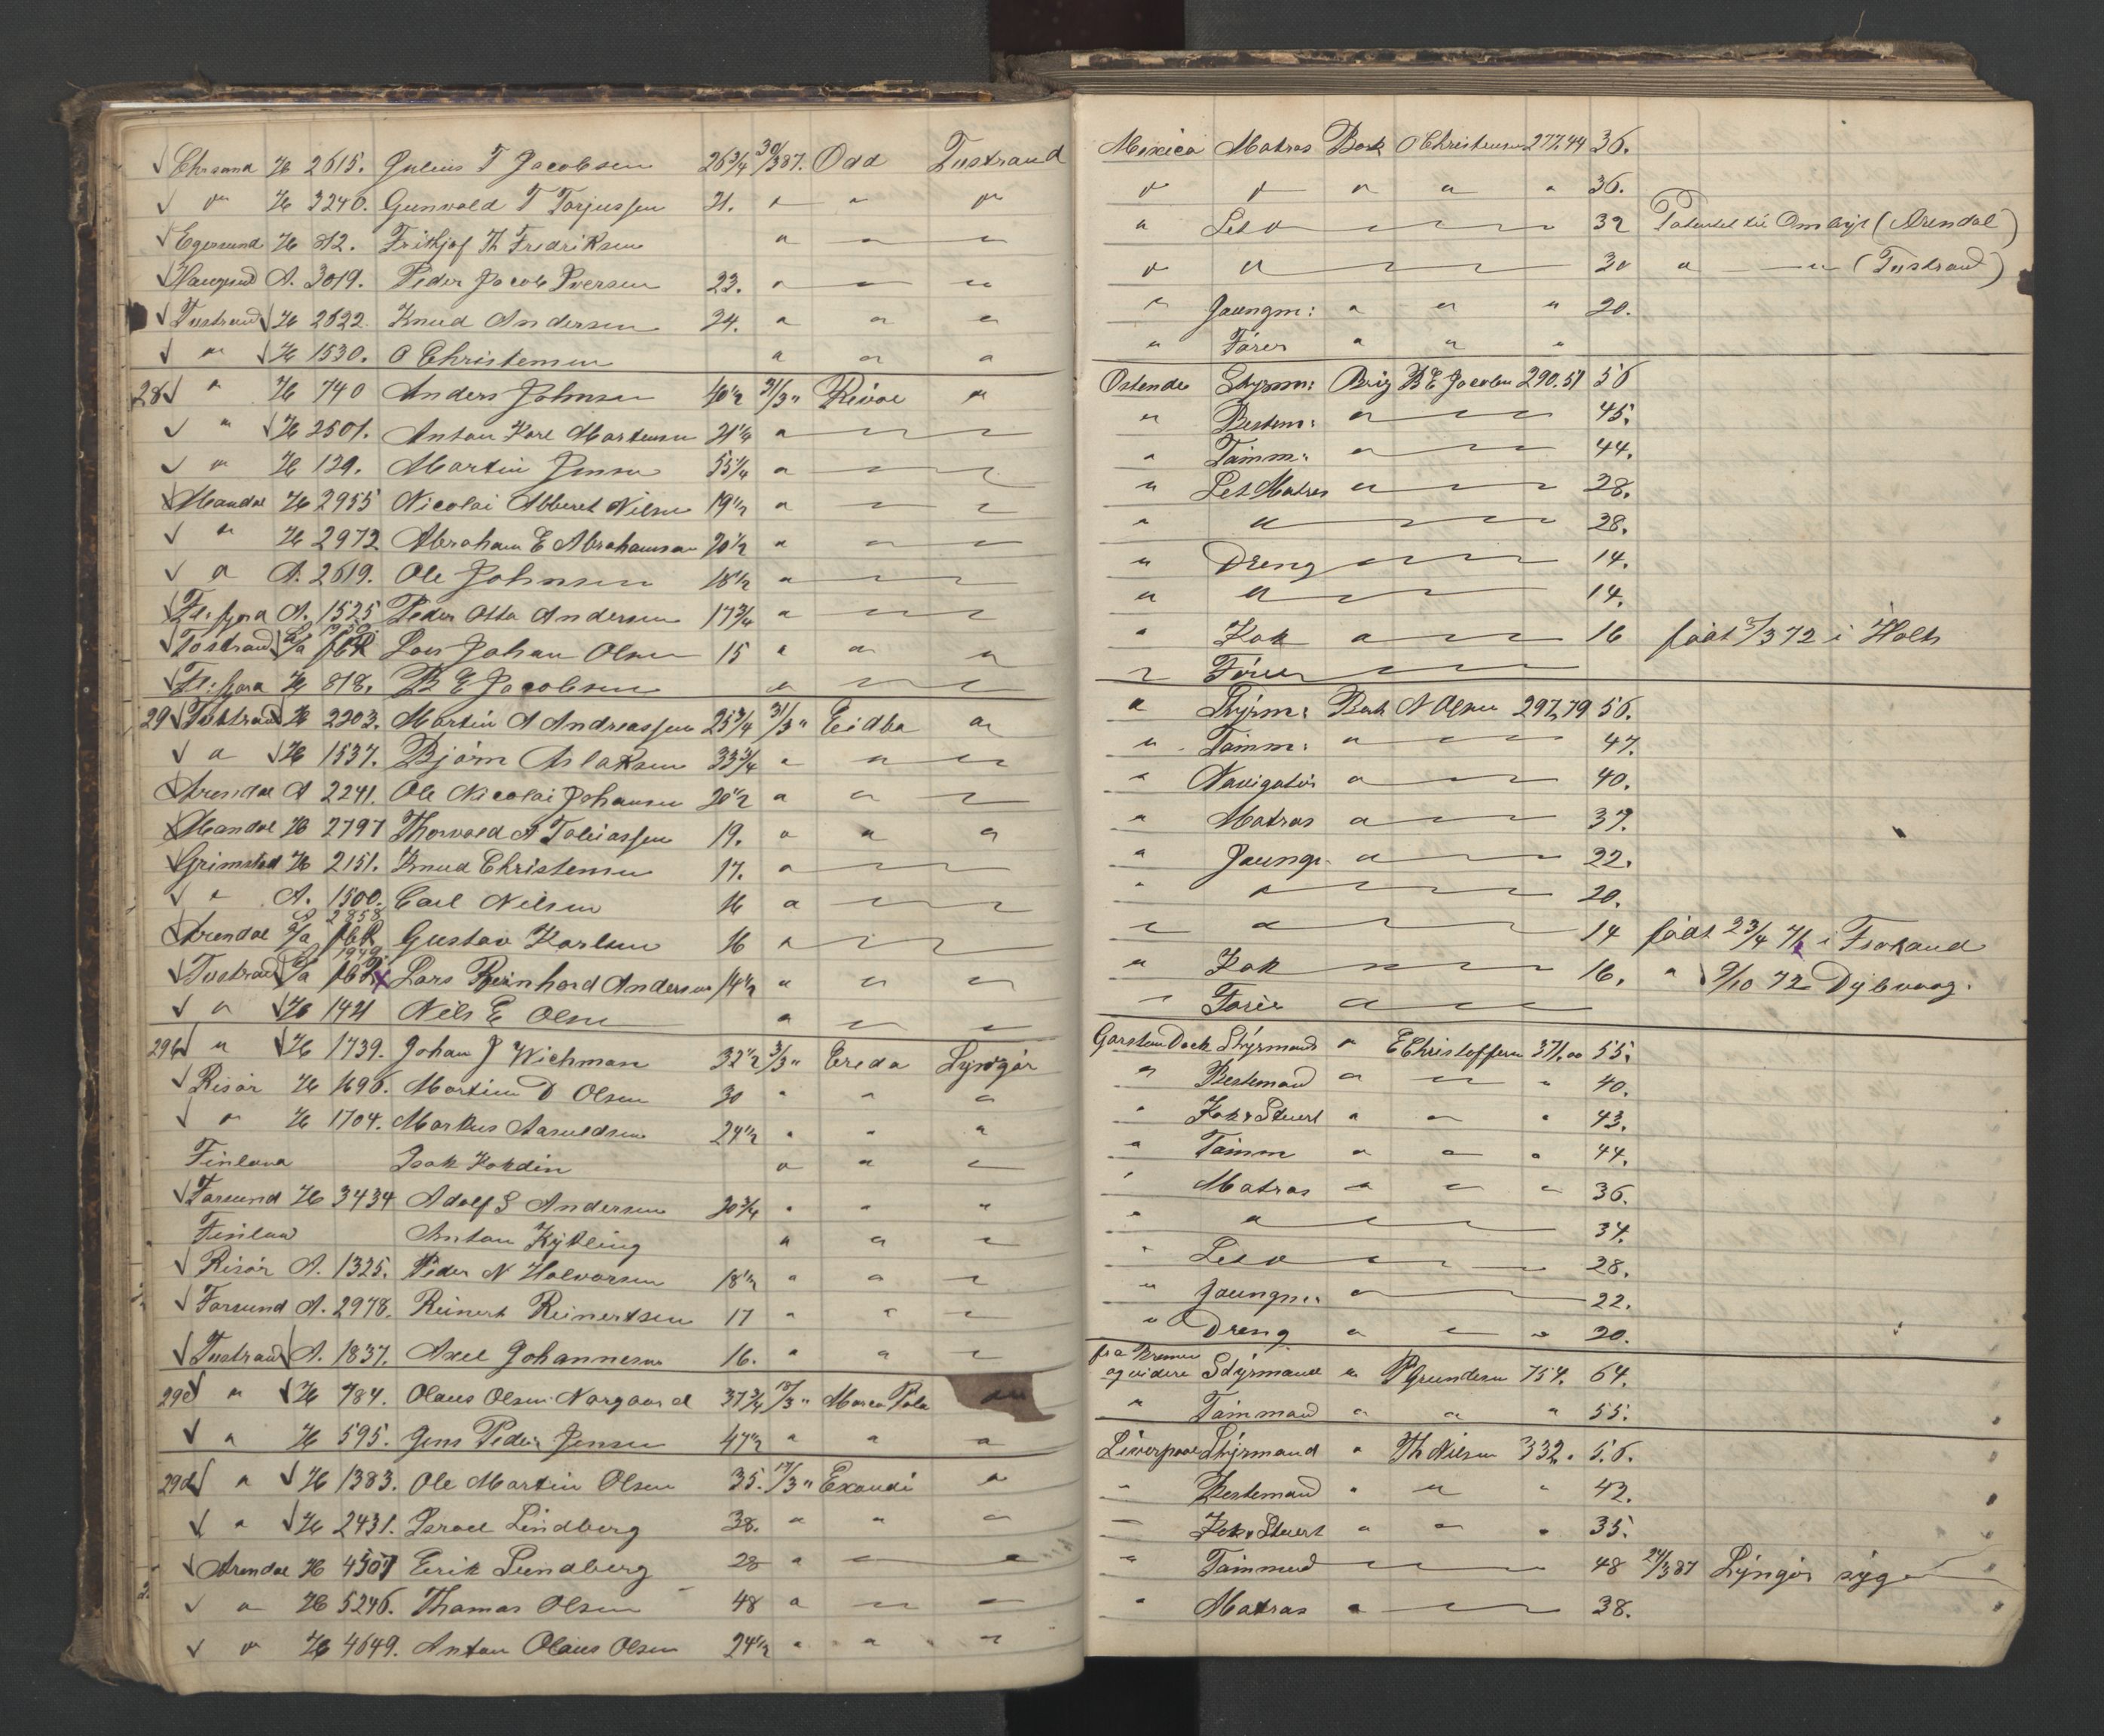 Chrsand H 2615. Julius T Jacobsen 26 3/4 30/3 87. Odd Tvstrand
" H 3240. Gunvald T Torjussen 21. " " "
Egersund H 812. Frithjof Th Fredriksen " " "
Haugsund A. 3019. Peder Jacob Iversen 23. " " "
Tvstrand H 2622. Knud Andersen 24. " " "
" H 1530. O Christensen " " "
28 " H 740 Anders Johnsen 40 1/2 31/3 " Rival "
" H 2501. Anton Karl Martensen 21 1/4 " " "
" H 129. Martin Jensen 55 1/4 " " "
Mandal H 2955 Nicolai Abberet Nilsen 19 1/2 " " "
" H 2972 Abraham E Abrahamsen 20 1/2 " " "
" A. 2619. Ole Johnsen 18 1/2 " " "
Fl:fjord A. 1525 Peder Otto Andersen 17 3/4 " " "
Tvstrand Lars Johan Olsen 15 " " "
Fl:fjord H 818. B E Jacobsen " " "
29 Tvstrand H 2203. Martin A Andreassen 25 3/4 31/3 " Eidba "
" H 1537. Bjørn Aslaksen 33 3/4 " " "
Arendal A 2241. Ole Nicolai Johansen 20 1/2 " " "
Mandal H 2797 Thorvald A Tobiassen 19. " " "
Grimstad H 2151. Knud Christensen 17. " " "
" A. 1500. Carl Nilsen 16 " " "
A 2858
Arendal Gustav Karlsen 16 " " "
Tvstrand Lars Reinhard Andersen 14 1/2 " " "
" H 1421 Nils E Olsen " " "
29b " H 1739. Johan J Wichman 32 1/2 3/3 " Creda Lyngør
Risør H 1696. Martin D Olsen 30 " " "
" H 1704. Markus Aanundsen 24 1/2 " " "
Finland Isak Kokdin " " "
Farsund H 3434 Adolf S Andersen 20 3/4 " " "
Finland Anton Kytling " " "
Risør A. 1325. Peder N Halvorsen 18 1/2 " " "
Farsund A. 2978. Reinert Reinertsen 17 " " "
Tvstrand A. 1837. Axel Johannesen 16. " " "
29c " H 784. Olaus Olsen Norgaard 37 3/4 17/3 " Marco Polo "
" H 595. Jens Peder Jensen 47 1/2 " " "
29d " H 1383. Ole Martin Olsen 35. 17/3 " Exaudi "
" H 2431. Israel Lindberg 38. " " "
Arendal H 4507 Erik Lundberg 28 " " "
" H 5246. Thomas Olsen 48 " " "
" H 4649. Anton Olaus Olsen 24 1/2 " " "
Mexico Matros Bark O Christensen 277,44 36.
" " " " " 36.
" Let " 32 Patentet til Ombyt (Arendal)
" " 30 " " (Tvstrand)
" Joungm: " " " 20.
" Fører " " "
Ostende Styrm: Brig B E Jacobsen 290.51 56
" Bestem: " 45.
" Tømm: " 44.
" Let Matros " 28.
" " 28.
" Dreng " 14.
" " 14.
" Kok " 16 født 3/3 72 i Holt
" Fører "
" Styrm: Bark N Olsen 297,79 56.
" Tømm: " 47.
" Navigatør " 40.
" Matros " 37.
" Joungm " 22.
" " 20.
" " 14 født 23/4 71 i Tvstrand
" Kok " 16. " 9/10 72 Dybvaag.
" Fører "
Garston Dock Styrmand " E Christoffersen 371,00 55.
" Bestemand " " " 40.
" Kok & Stuert " " " 43.
" Tømm " " " 44.
" Matros " " " 36.
" " 34.
" Let " 28.
" Joungm: " 22.
" Dreng " " " 20.
fra Bremen
og videre Styrmand " P Gundersen 754. 64.
" Tømmand " " " 55.
Liverpool Styrmand " Th Nilsen 332. 56.
" Bestemand " " " 42.
" Kok & Stuert " " " 35.
" Tømmand " 48 24/3 87 Lyngør syg
" Matros " 38.